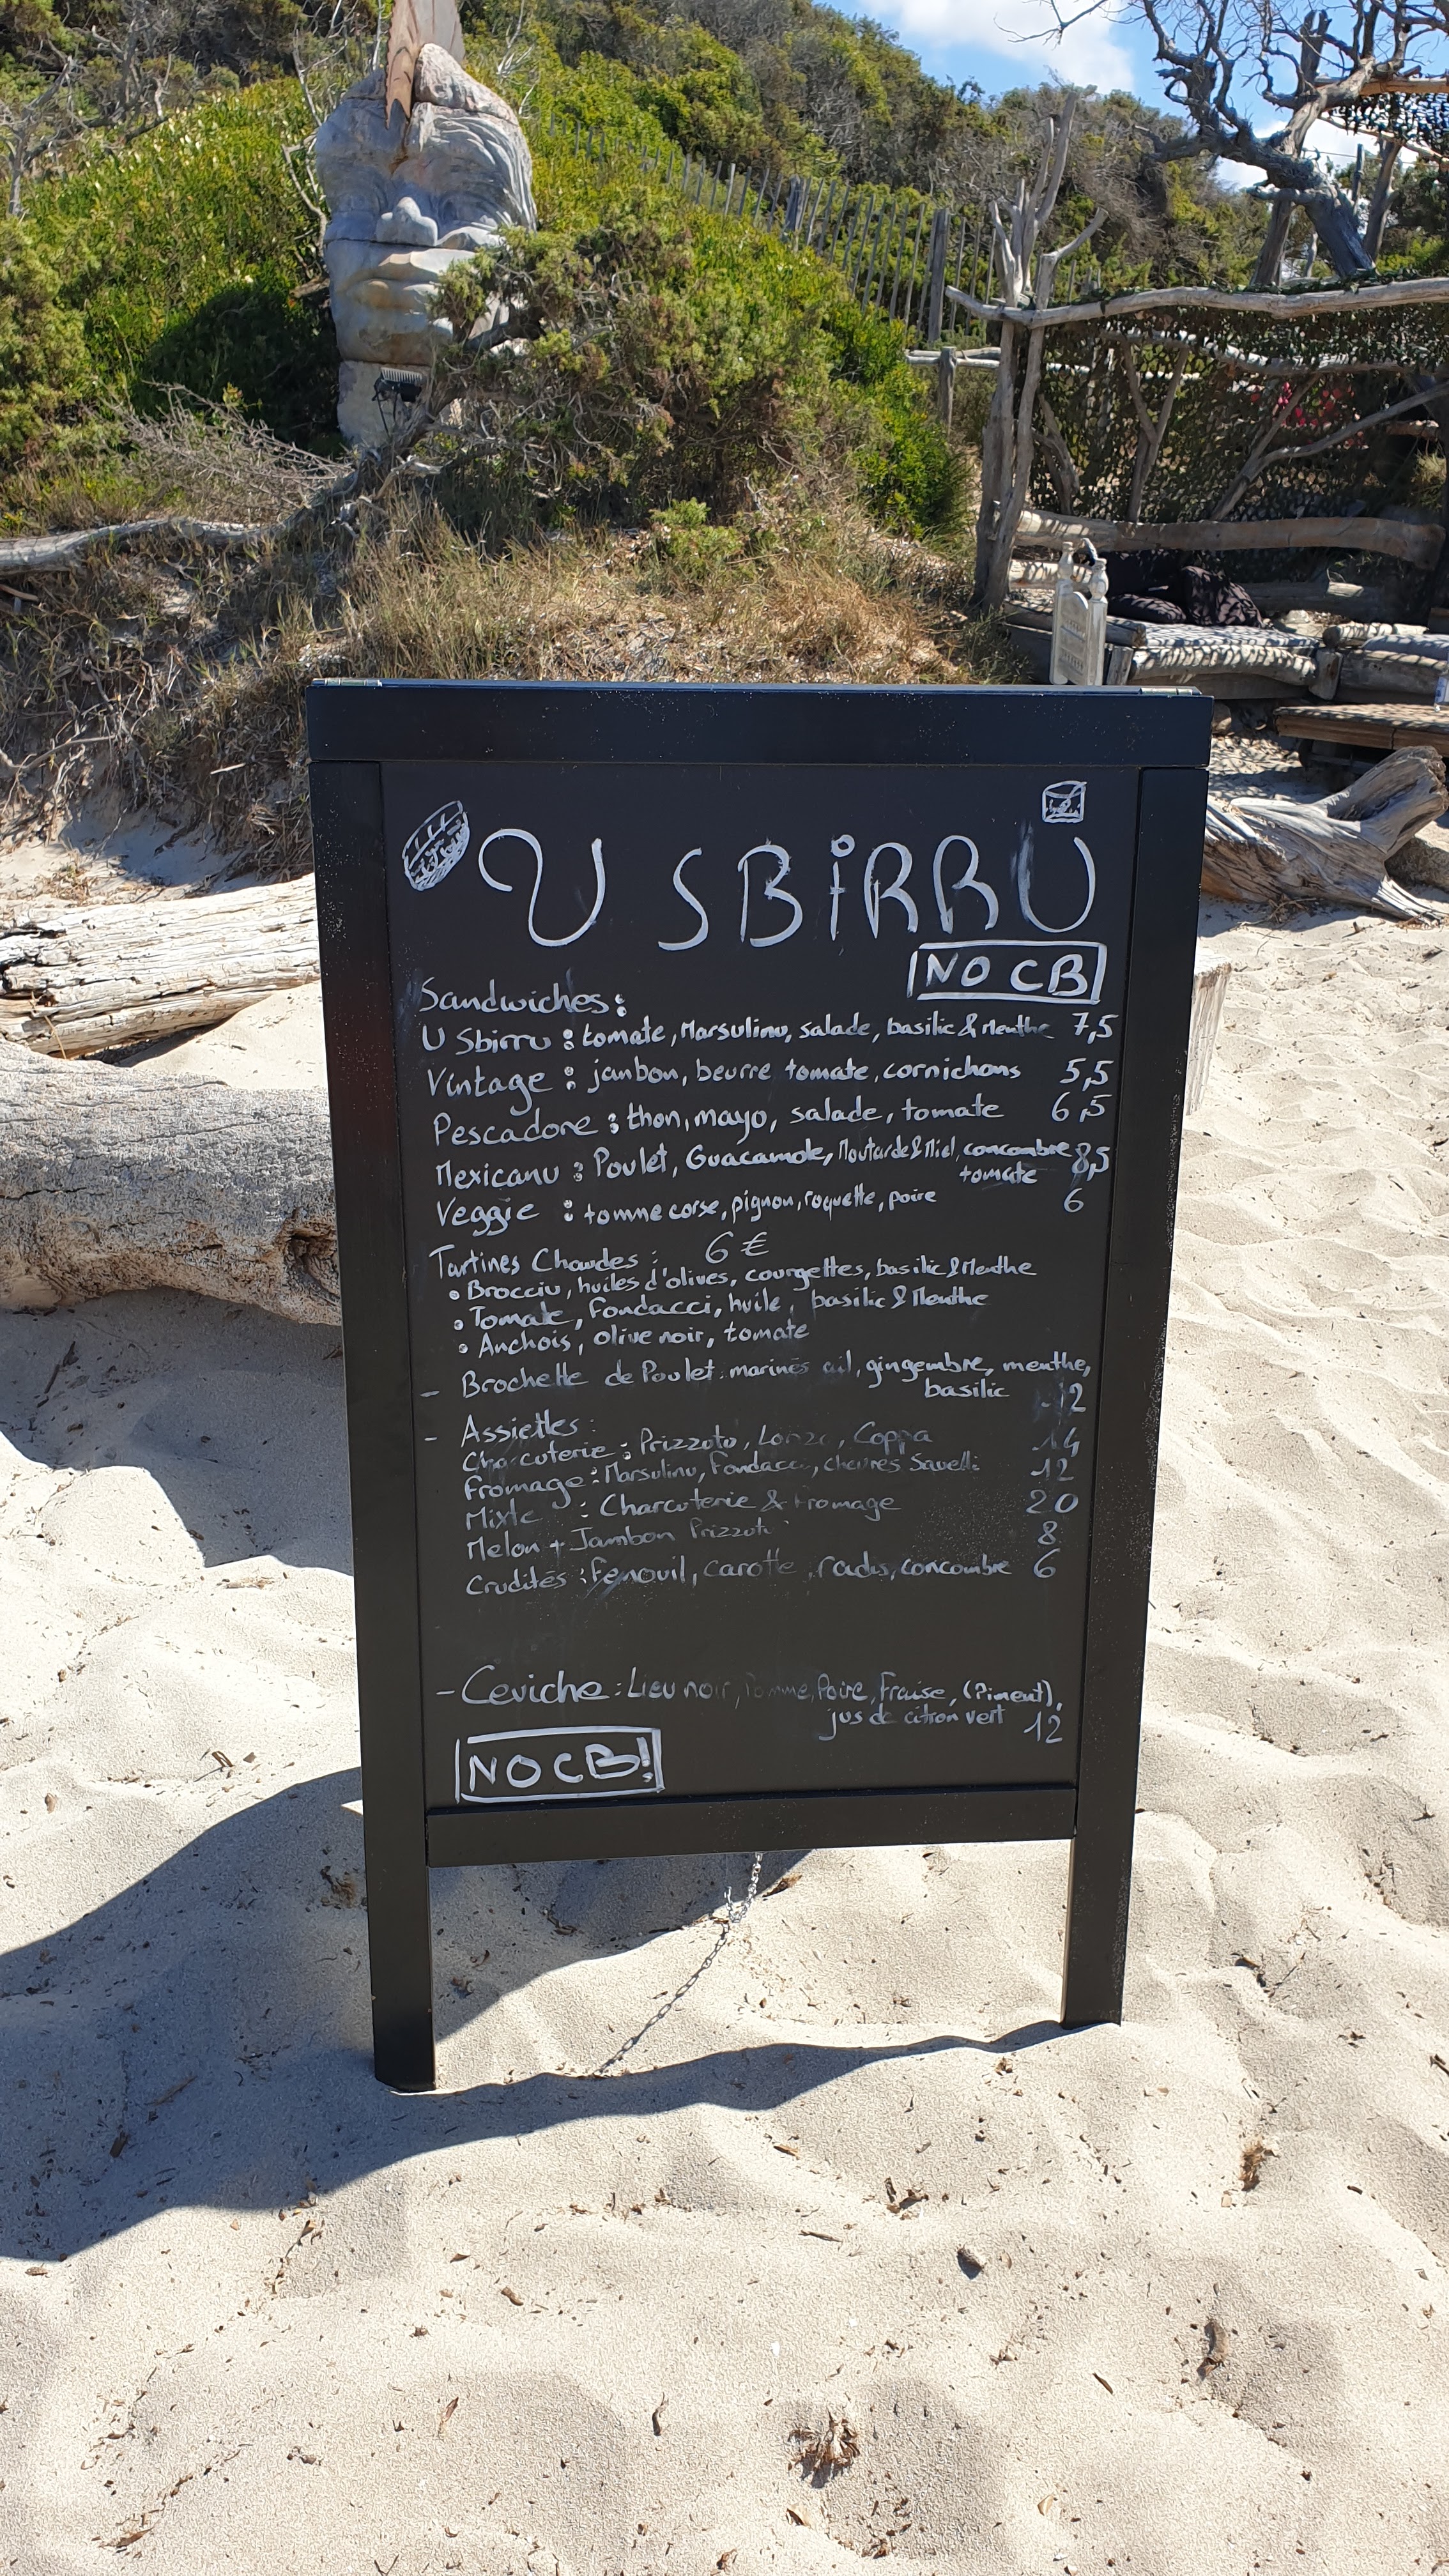 U SBiRRU
NO CB
Sandwiches:
U Sbirru : tomate, Marsulinu, salade, basilic & Menthe 7,5
Vintage : janbon, beurre tomate, cornichons 5,5
Pescadore : thon, mayo, salade, tomate 6,5
Mexicanu : Poulet, Guacamole, Moutarde & Miel, concombre 8,5
tomate
Veggie : tomme corse, pignon, roquette, poire 6
Tartines Chaudes : 6 €
• Brocciu, huiles d'olives, courgettes, basilic & Menthe
• Tomate, Fondacci, huile, basilic & Menthe
• Anchois, olive noir, tomate
- Brochette de Poulet : marinés ail, gingembre, menthe,
basilic 12
- Assiettes :
Charcuterie : Prizzutu, Lonzo, Coppa 14
Fromage : Marsulinu, Fondacci, chèvres Savelli 12
Mixte : Charcuterie & Fromage 20
Melon + Jambon Prizzutu 8
Crudités : Fenouil, carotte, radis, concombre 6
- Ceviche : Lieu noir, Pomme, Poire, Fraise, (Piment),
jus de citron vert 12
NO CB!